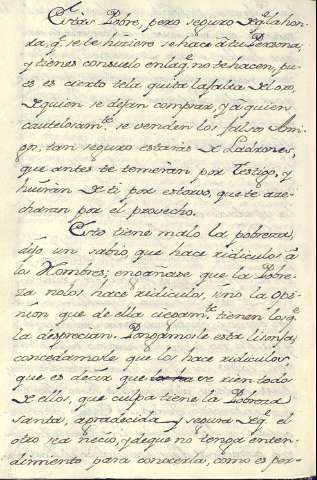 Estàs Pobre, pero seguro de q.e la hon-
ra, q.e se te hiziere se hace à tu Persona;
y tienes consuelo en la q.e no te hacen, pu-
es es cierto te la quita la falta del oro,
de quien se dejan comprar, y à quien
cautelosam.te se venden los falsos Ami-
gos, tan seguro estaràs de Ladrones,
que antes te temeràn por Testigo, y
huiràn de ti por estorvo, que te ace-
charan por el provecho.
Esto tiene malo la pobreza,
dijo un sabio, que hace ridiculos à
los Hombres; engañose que la Pobre-
za no los hace ridiculos, sino la Opi-
nion que de ella ciegam.te tienen los q.e
la desprecian. Pongamosle esta lisonja,
concedamosle que los hace ridiculos,
que es decir que se rien todos
de ellos, que culpa tiene la Pobreza
santa, agradecida y segura de q.e el
otro sea necio, y de que no tenga enten-
dimiento para conocerla, como es per-